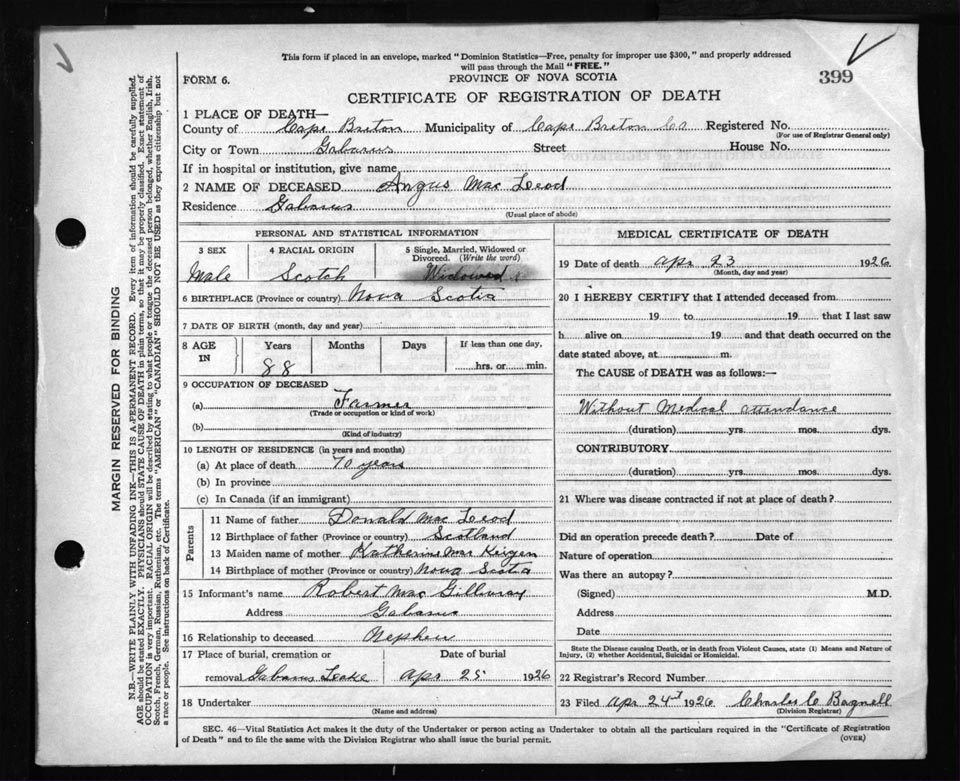 This form if placed in an envelope, marked "Dominion Statistics—Free, penalty for improper use $300," and properly addressed
will pass through the Mail "FREE."
FORM 6.
PROVINCE OF NOVA SCOTIA
399
CERTIFICATE OF REGISTRATION OF DEATH
1 PLACE OF DEATH—
County of Cape Breton Municipality of Cape Breton Co Registered No.
(For use of Registrar General only)
City or Town Gabarus Street House No.
If in hospital or institution, give name
2 NAME OF DECEASED Angus Mac Leod
Residence Gabarus
(Usual place of abode)
PERSONAL AND STATISTICAL INFORMATION
3 SEX 4 RACIAL ORIGIN 5 Single, Married, Widowed or
Divorced. (Write the word)
Male Scotch Widowed
6 BIRTHPLACE (Province or country) Nova Scotia
7 DATE OF BIRTH (month, day and year)
8 AGE Years Months Days If less than one day,
IN 88 hrs. or min.
9 OCCUPATION OF DECEASED
(a) Farmer
(Trade or occupation or kind of work)
(b)
(Kind of industry)
10 LENGTH OF RESIDENCE (in years and months)
(a) At place of death 70 years
(b) In province
(c) In Canada (if an immigrant)
Parents
11 Name of father Donald Mac Leod
12 Birthplace of father (Province or country) Scotland
13 Maiden name of mother Katherine Mac
14 Birthplace of mother (Province or country) Nova Scotia
15 Informant's name Robert Mac Gillivray
Address Gabarus
16 Relationship to deceased Nephew
17 Place of burial, cremation or Date of burial
removal Gabarus Apr 25 1926
18 Undertaker
(Name and address)
MEDICAL CERTIFICATE OF DEATH
19 Date of death Apr 23 1926
(Month, day and year)
20 I HEREBY CERTIFY that I attended deceased from
19 to 19 that I last saw
h alive on 19 and that death occurred on the
date stated above, at m.
The CAUSE of DEATH was as follows:—
Without Medical attendance
(duration) yrs. mos. dys.
CONTRIBUTORY
(duration) yrs. mos. dys.
21 Where was disease contracted if not at place of death?
Did an operation precede death? Date of
Nature of operation
Was there an autopsy?
(Signed) M.D.
Address
Date
State the Disease causing Death, or in death from Violent Causes, state (1) Means and Nature of
Injury, (2) whether Accidental, Suicidal or Homicidal.
22 Registrar's Record Number
23 Filed Apr 24 1926 Charles C Bagnell
(Division Registrar)
SEC. 46—Vital Statistics Act makes it the duty of the Undertaker or person acting as Undertaker to obtain all the particulars required in the "Certificate of Registration
of Death" and to file the same with the Division Registrar who shall issue the burial permit.
(OVER)
MARGIN RESERVED FOR BINDING
N.B.—WRITE PLAINLY, WITH UNFADING INK—THIS IS A PERMANENT RECORD. Every item of information should be carefully supplied.
AGE should be stated EXACTLY. PHYSICIANS should STATE CAUSE OF DEATH in plain terms, so that it may be properly classified. Exact statement of
OCCUPATION is very important. RACIAL ORIGIN will be described by stating to what people or tongue the deceased person belonged, whether English, Irish,
Scotch, French, German, Russian, Ruthenian, etc. The terms "AMERICAN" or "CANADIAN" SHOULD NOT BE USED as they express citizenship but not
a race or people. See instructions on back of Certificate.